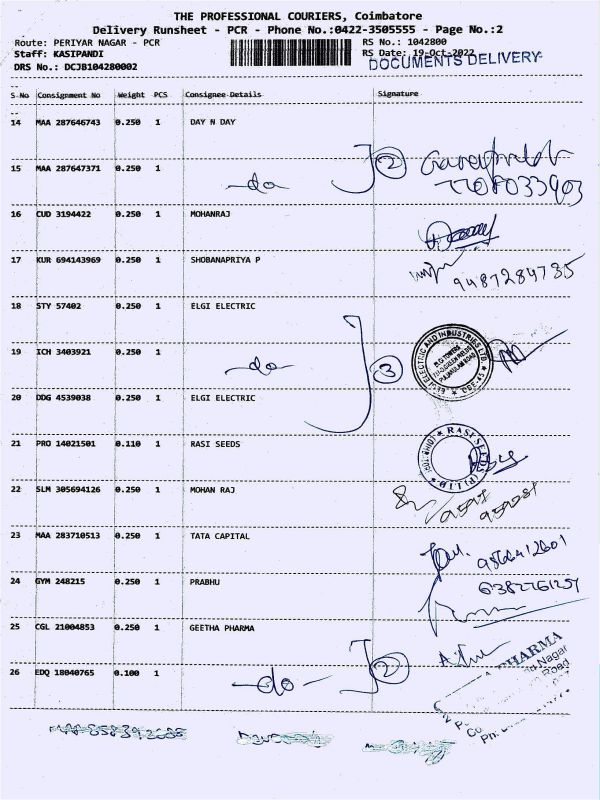 THE PROFESSIONAL COURIERS, Coimbatore
Delivery Runsheet - PCR - Phone No.:0422-3505555 - Page No.:2
Route: PERIYAR NAGAR - PCR RS No.: 1042800
Staff: KASIPANDI RS Date: 19-Oct-2022
DRS No.: DCJB104280002 DOCUMENTS DELIVERY
S No Consignment No Weight PCS Consignee Details Signature
14 MAA 287646743 0.250 1 DAY N DAY
15 MAA 287647371 0.250 1 -do- 2
7708033903
16 CUD 3194422 0.250 1 MOHANRAJ
17 KUR 694143969 0.250 1 SHOBANAPRIYA P
9487284735
18 STY 57402 0.250 1 ELGI ELECTRIC
19 ICH 3403921 0.250 1 -do- 3
ELGI ELECTRIC AND INDUSTRIES LTD.
20 DDG 4539038 0.250 1 ELGI ELECTRIC
21 PRO 14021501 0.110 1 RASI SEEDS
RASI SEEDS (P) LTD
22 SLM 305694126 0.250 1 MOHAN RAJ
23 MAA 283710513 0.250 1 TATA CAPITAL
24 GYM 248215 0.250 1 PRABHU
25 CGL 21004853 0.250 1 GEETHA PHARMA
26 EDQ 18040765 0.100 1 -do- 2
PHARMA
Nagar
Road